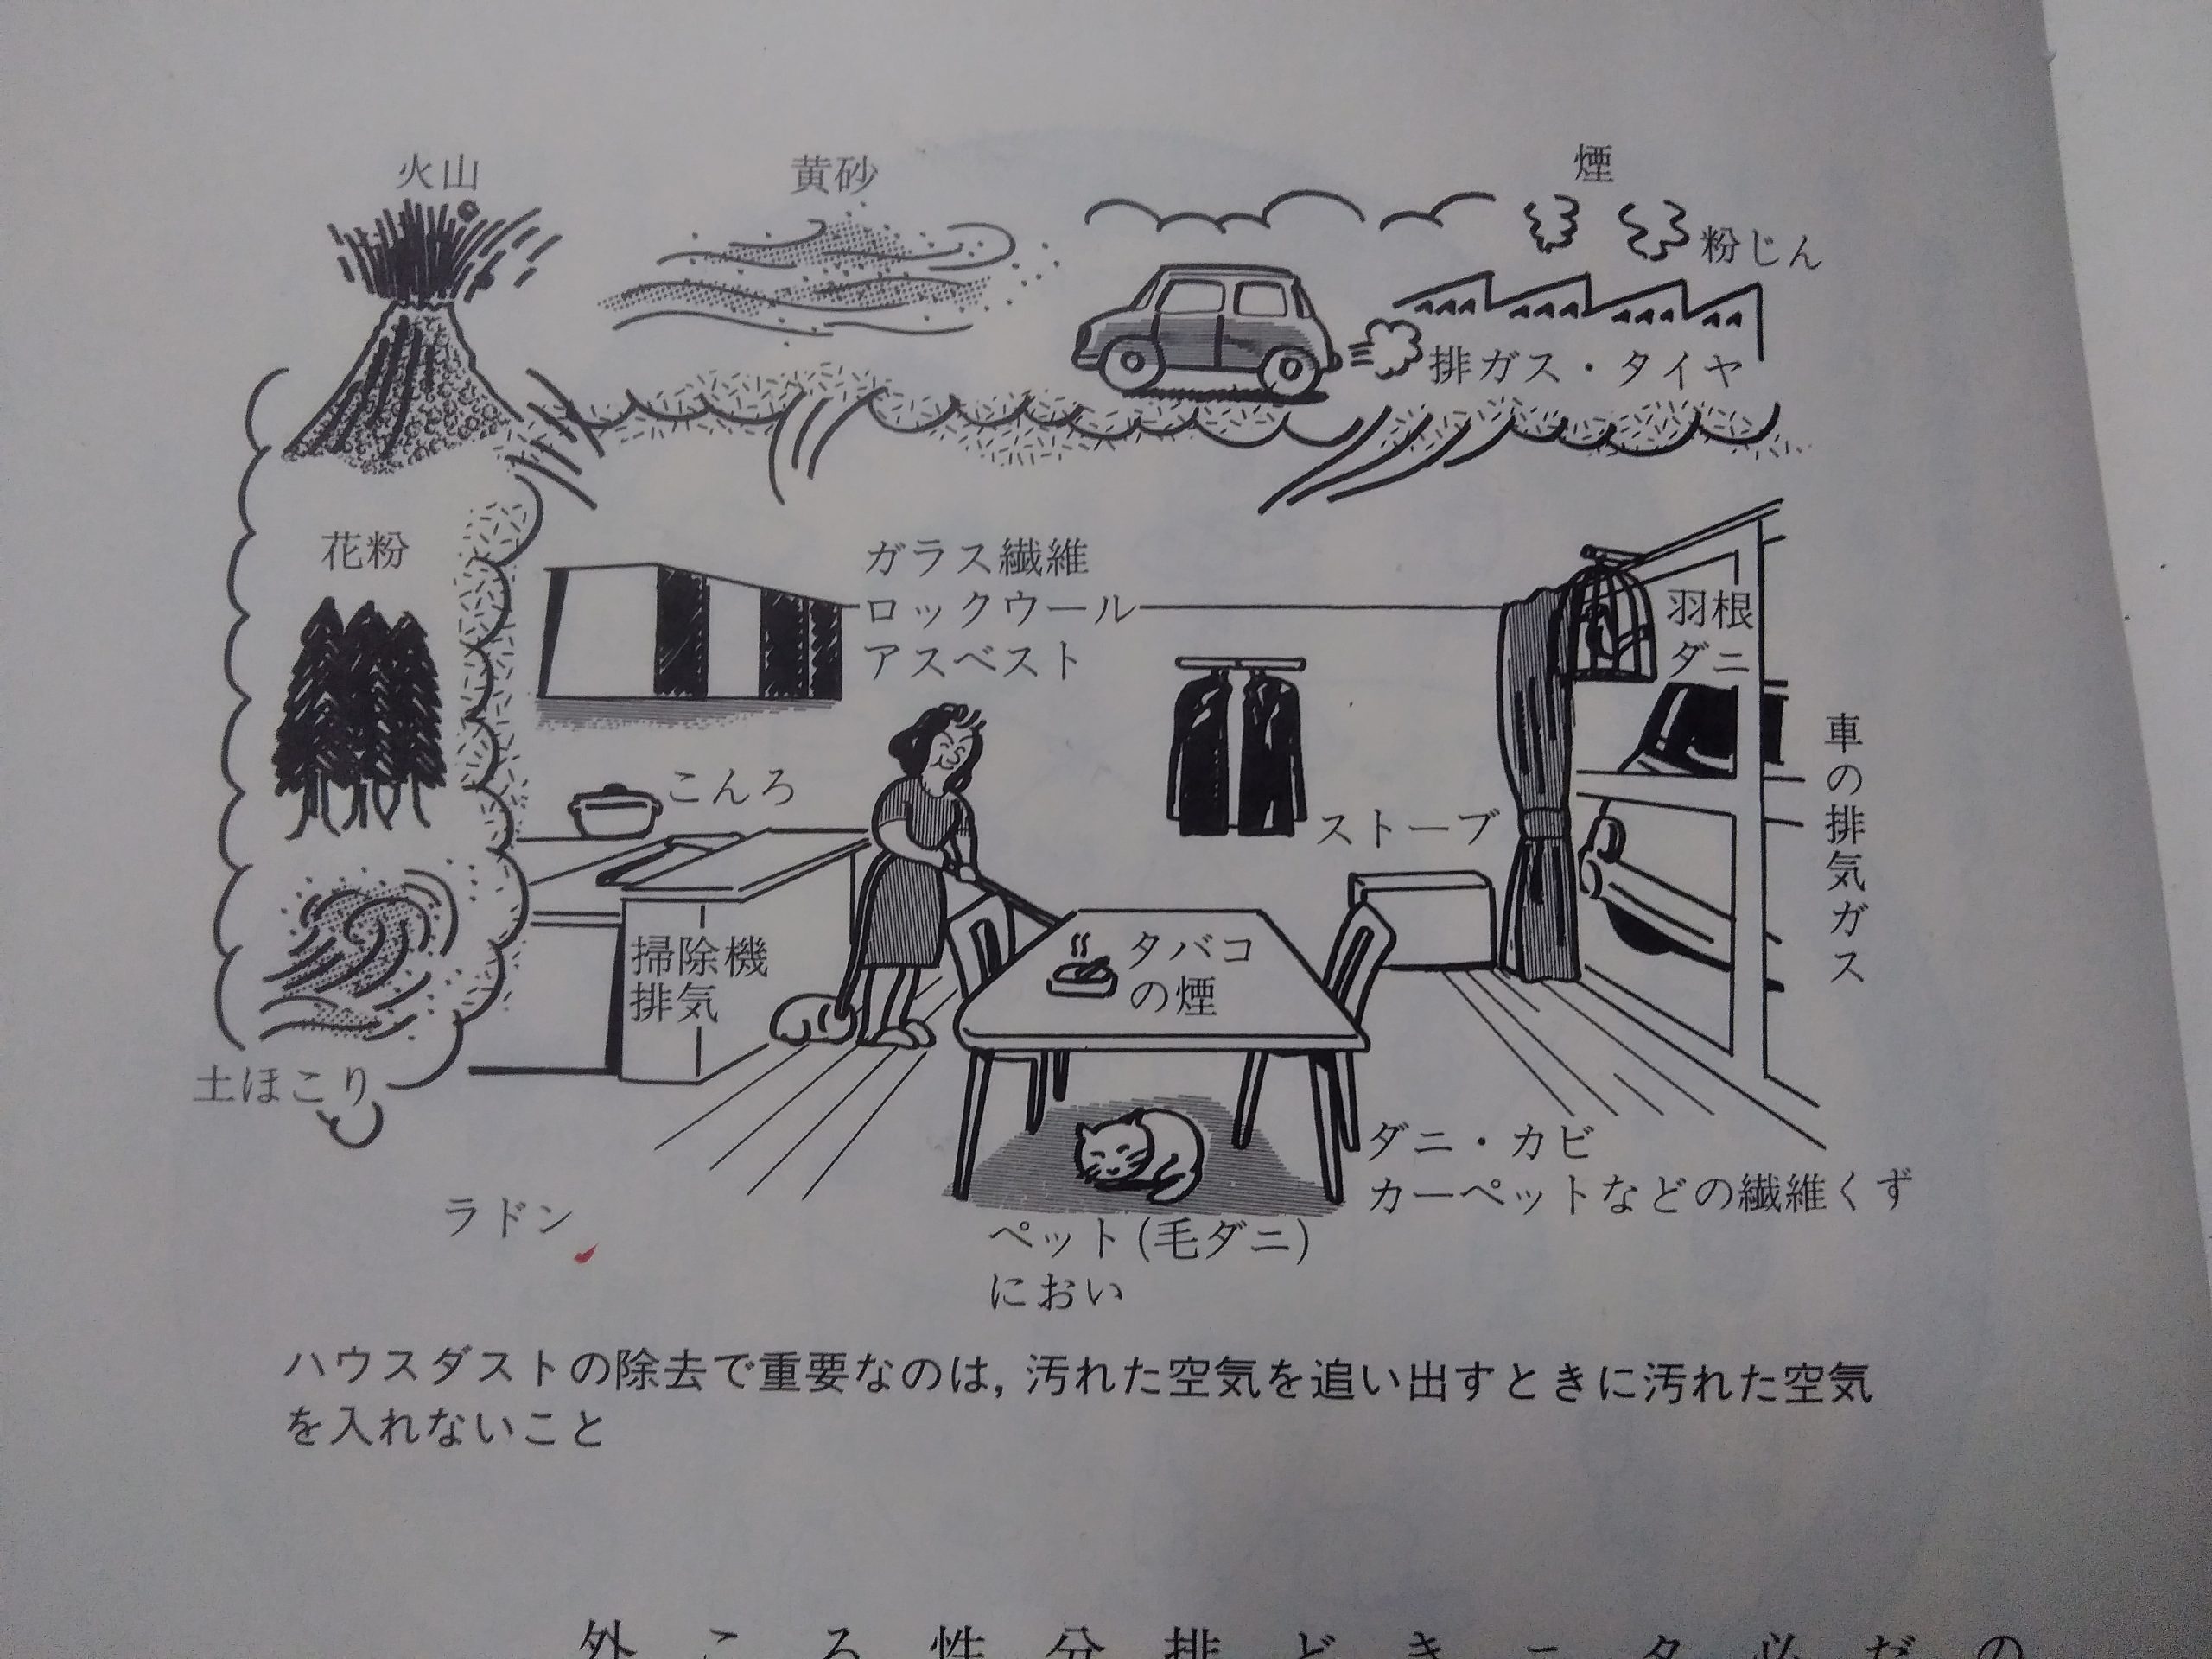 火山
黄砂
煙
粉じん
排ガス・タイヤ
花粉
ガラス繊維
ロックウール
アスベスト
羽根
ダニ
車の排気ガス
こんろ
ストーブ
掃除機
排気
タバコ
の煙
土ほこり
ダニ・カビ
カーペットなどの繊維くず
ラドン
ペット(毛ダニ)
におい
ハウスダストの除去で重要なのは,汚れた空気を追い出すときに汚れた空気
を入れないこと